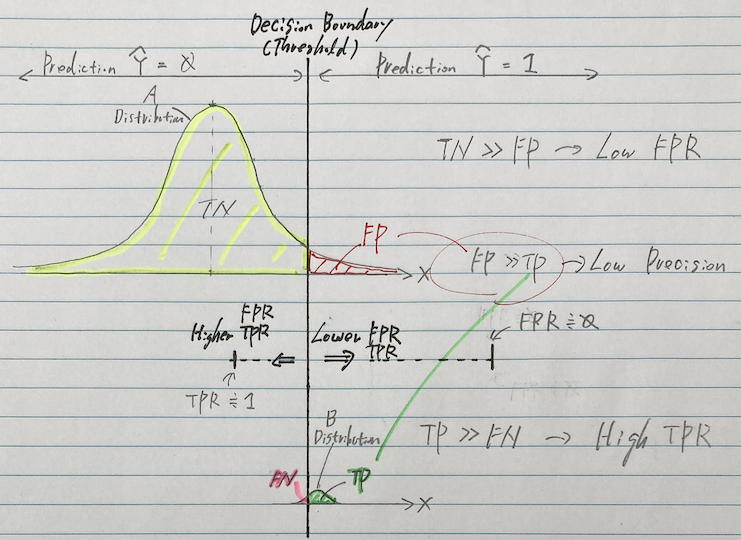 Decision Boundary
(Threshold)
Prediction Ŷ = 0
Prediction Ŷ = 1
A
Distribution
TN >> FP → Low FPR
TN
FP
FP >> TP → Low Precision
X
Higher FPR TPR
Lower FPR TPR
FPR ≒ 0
TPR ≒ 1
B
Distribution
TP >> FN → High TPR
FN
TP
X